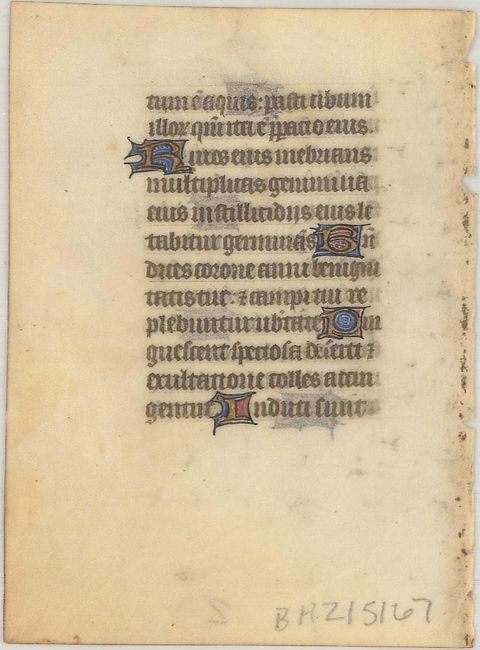 tum ē aquis: p̄asti cibum
illoꝝ qm̄ ita ē p̄paci o eius.
Riuos eius inebrians
multiplicas genimina
eius in stillicidijs eius le
tabitur germinās Bn̄
dices corone anni benigni
tatis tue. ⁊ campi tui re
plebuntur ub̄tate Pin
guescent speciosa deserti ⁊
exultatione colles accin
gentur Induti sunt
BH215167